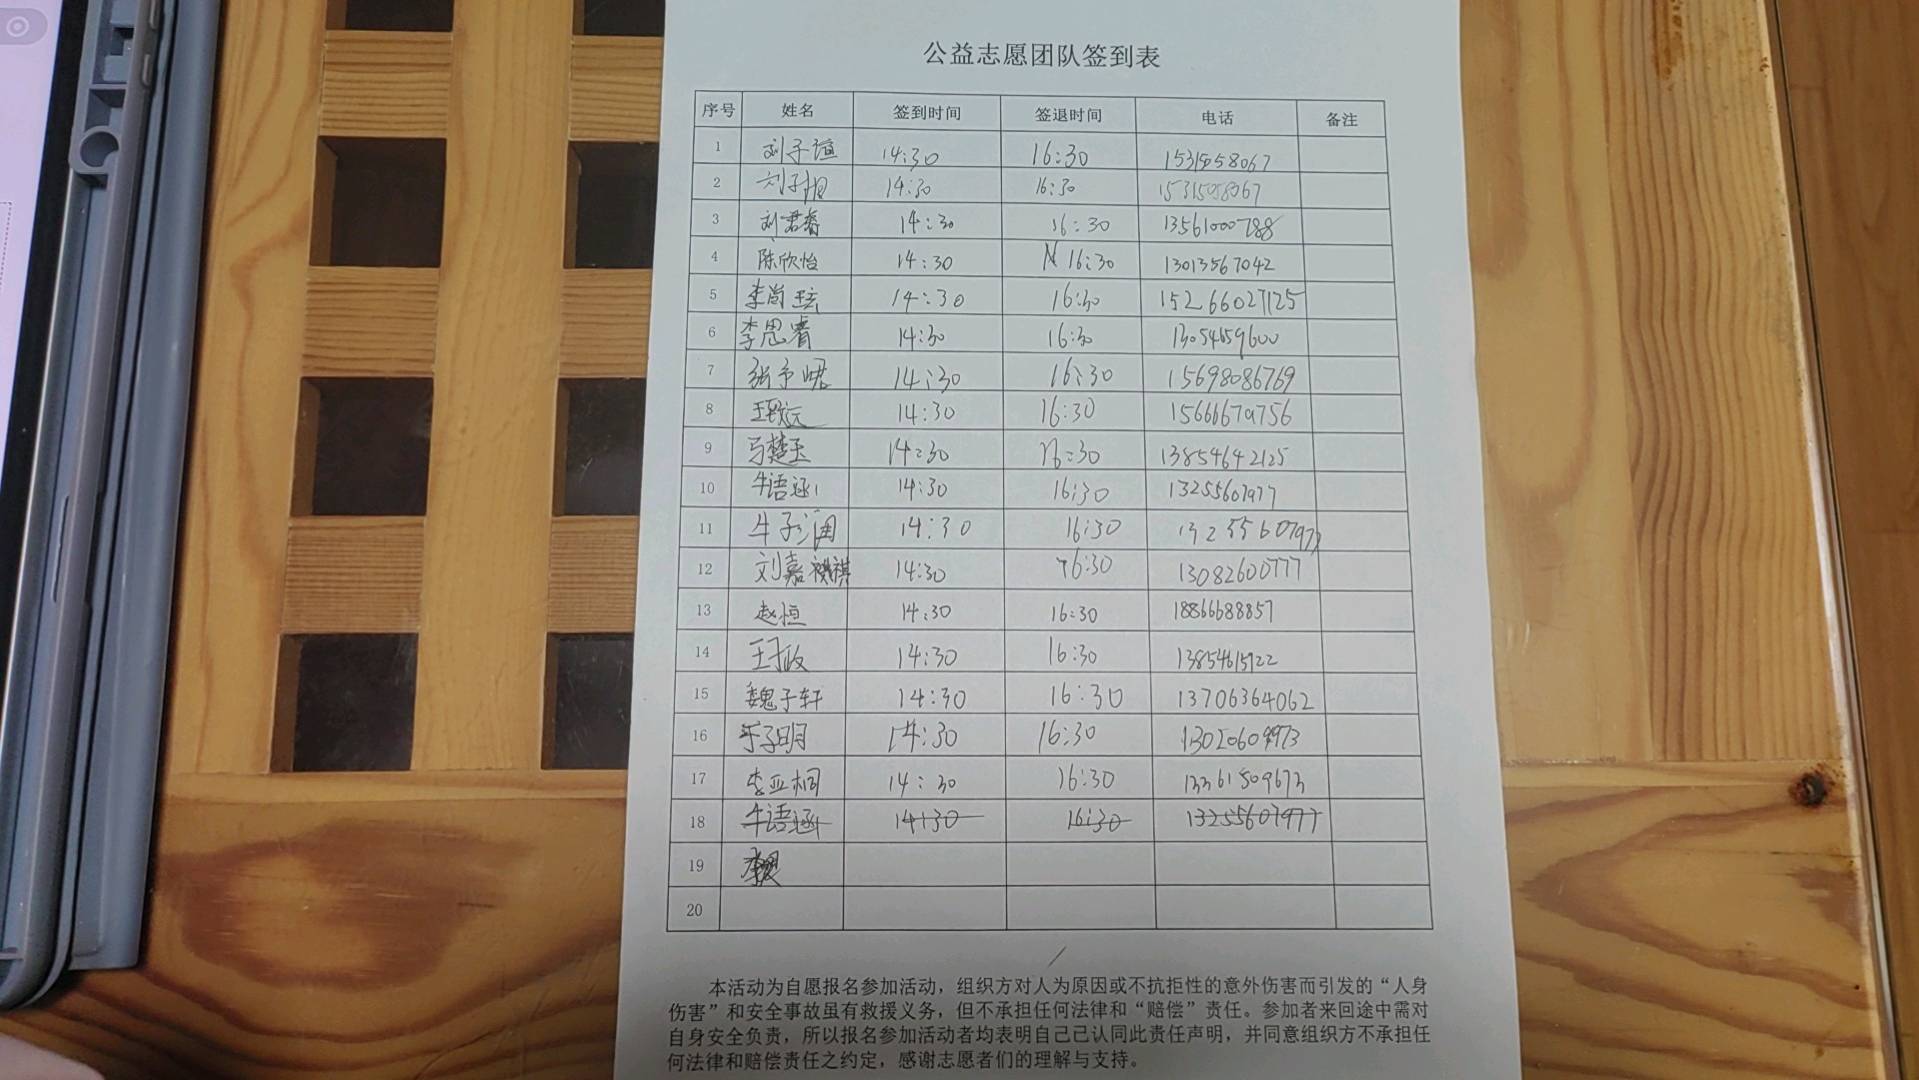 公益志愿团队签到表
序号 姓名 签到时间 签退时间 电话 备注
1 刘子谊 14:30 16:30 15315058067
2 刘子 14:30 16:30 15315058067
3 刘君睿 14:30 16:30 13561000788
4 陈欣怡 14:30 16:30 13013567042
5 李尚玹 14:30 16:30 15266027125
6 李思睿 14:30 16:30 13054659600
7 张予曦 14:30 16:30 15698086769
8 14:30 16:30 15666679756
9 马楚玉 14:30 16:30 13854642125
10 牛语涵 14:30 16:30 13255607977
11 牛子润 14:30 16:30 13255607977
12 刘嘉祺 14:30 16:30 13082600777
13 赵恒 14:30 16:30 18866688857
14 14:30 16:30 13854615922
15 魏子轩 14:30 16:30 13706364062
16 于子明 14:30 16:30
17 李亚桐 14:30 16:30 13361509673
18 牛语涵 14:30 16:30 13255607977
19
20
本活动为自愿报名参加活动，组织方对人为原因或不抗拒性的意外伤害而引发的“人身
伤害”和安全事故虽有救援义务，但不承担任何法律和“赔偿”责任。参加者来回途中需对
自身安全负责，所以报名参加活动者均表明自己已认同此责任声明，并同意组织方不承担任
何法律和赔偿责任之约定，感谢志愿者们的理解与支持。